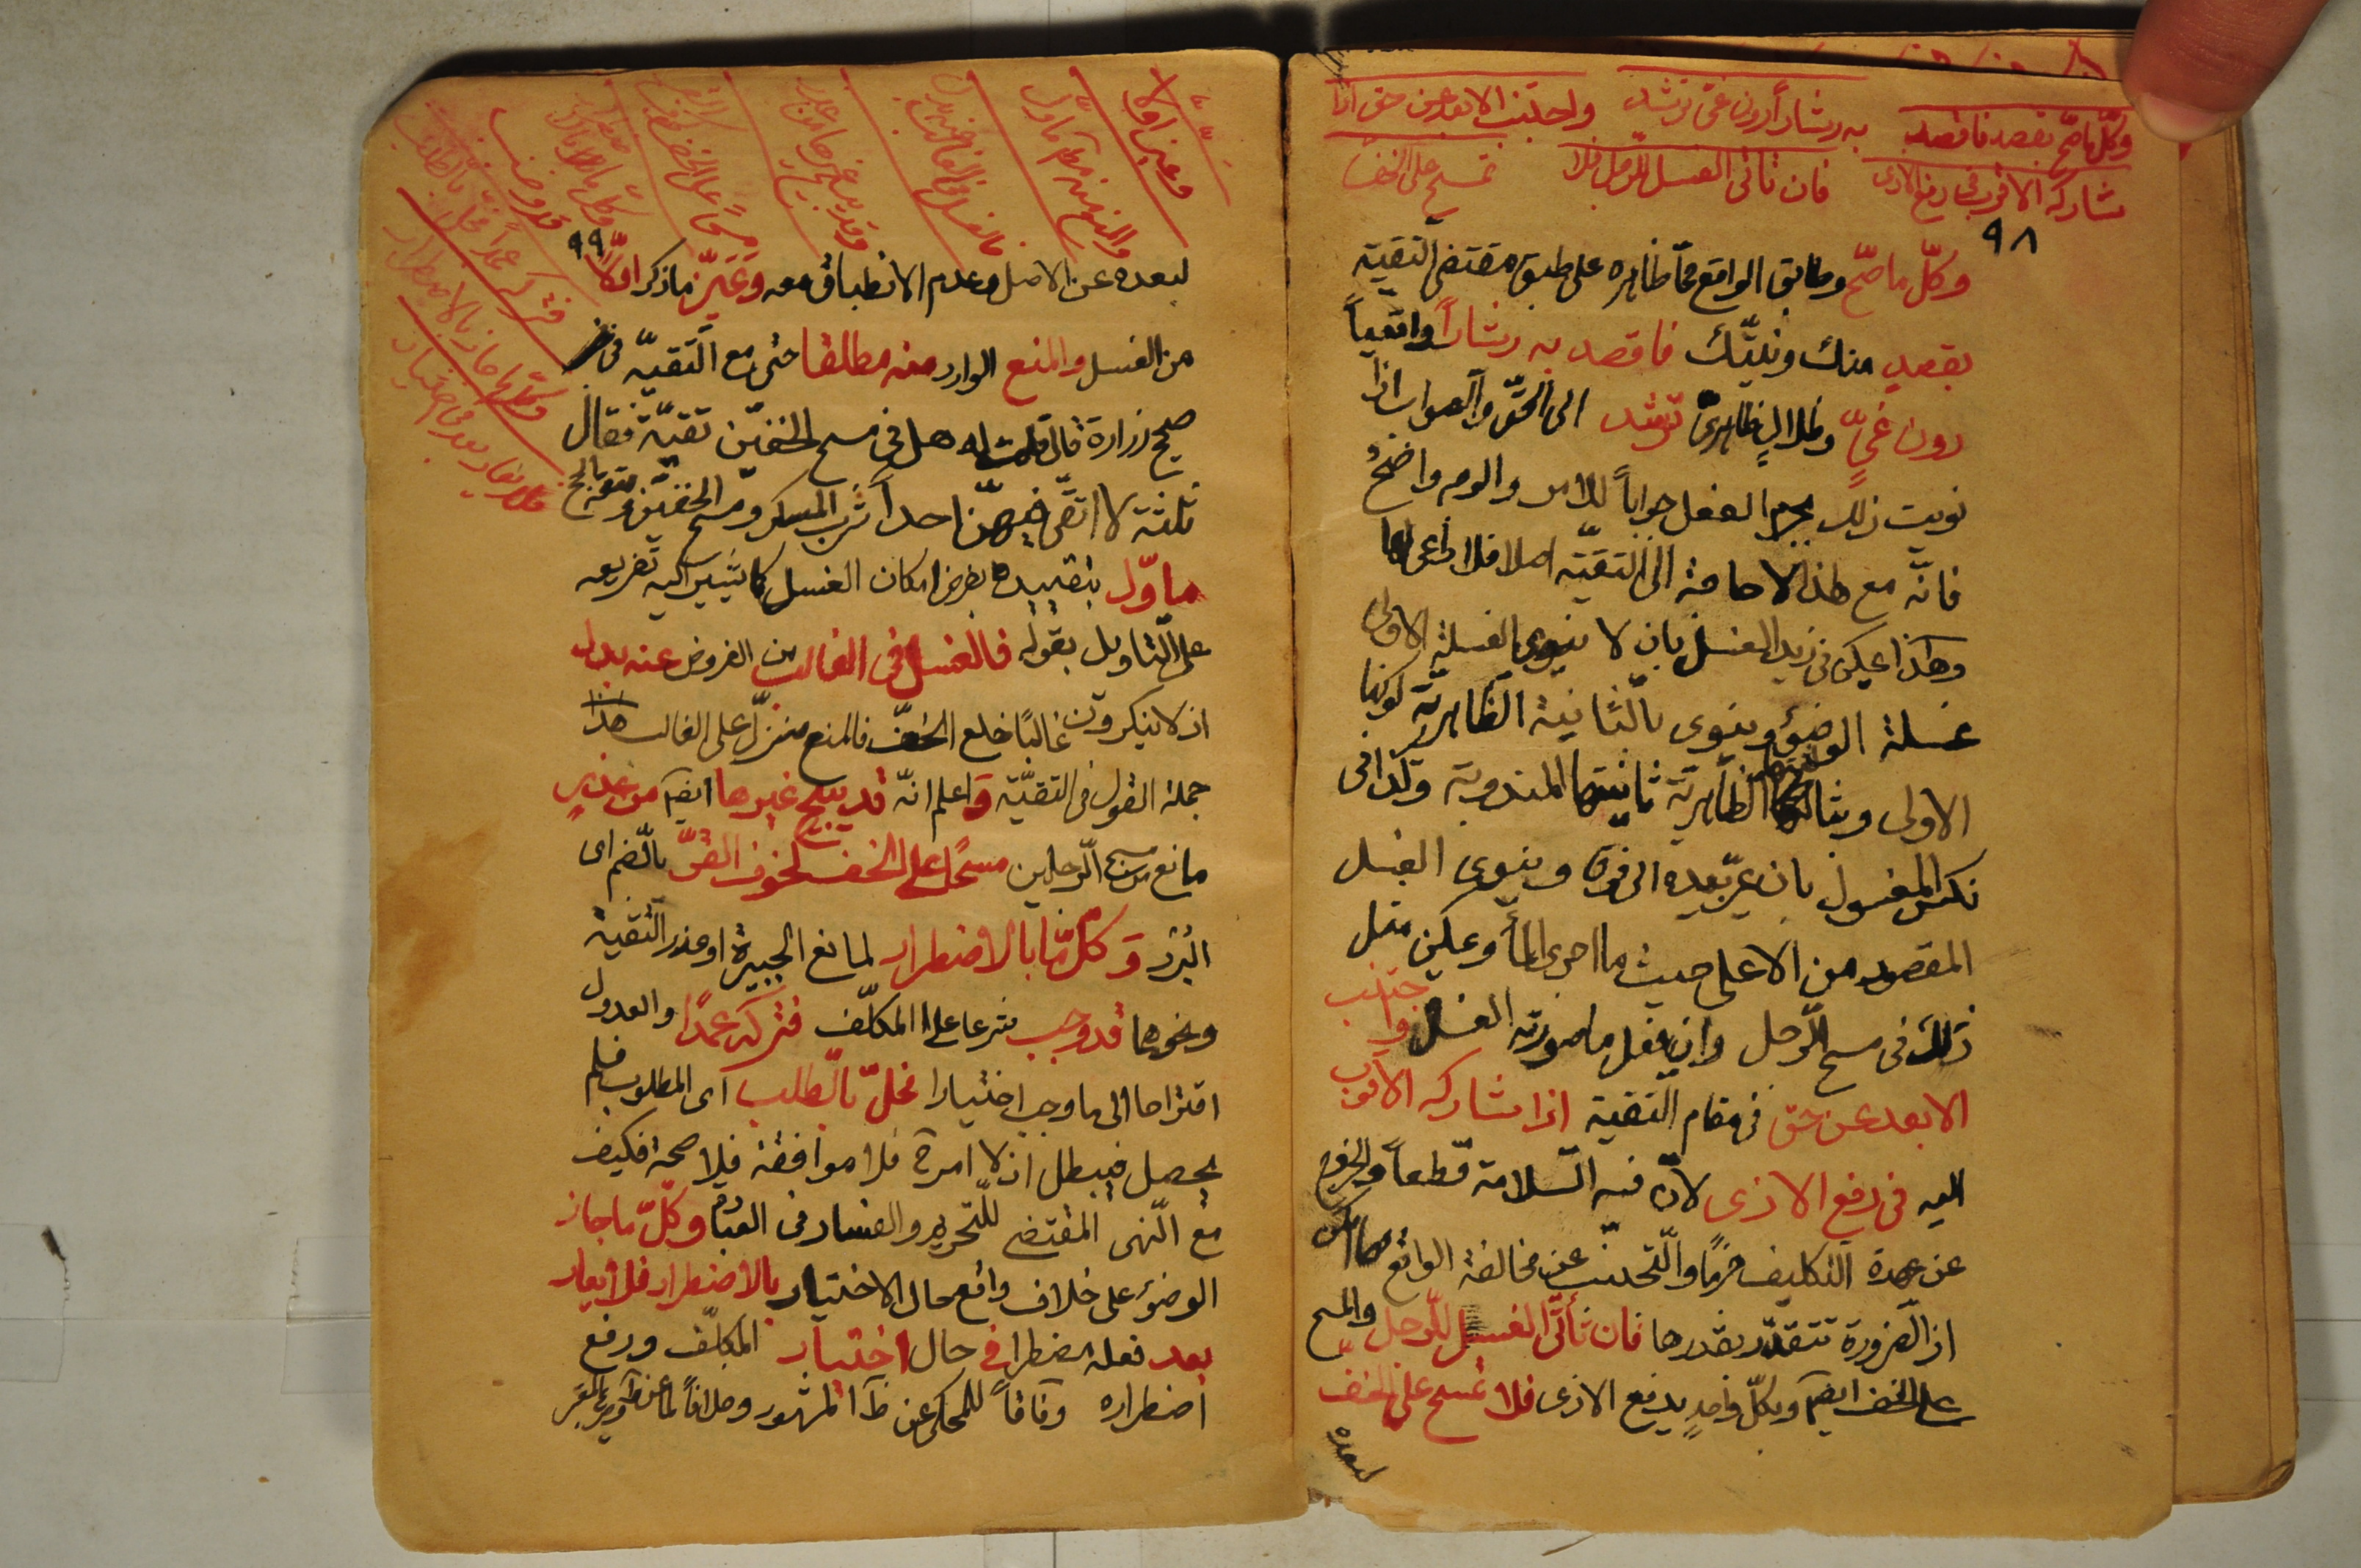 وكلّ ما صحّ بقصد فاقصد
به رشاداً دون غيّ ترشد
واجتنب الابعد عن حق اذا
شاركه الاقرب في دفع الاذى
فان تأتى الغسل للرجل فلا
تمسح على الخف
٩٨
وكلّ ما صحّ وطابق الواقع ممّا ظاهره على طبق مقتضى التقية
بقصدٍ منك ونيّتك فاقصد به رشاداً واقعياً
دون غيٍّ وضلالٍ ظاهريّ ترشد الى الحقّ والصواب اذا
نويت ذلك بهذا الفعل جواباً للامر والوجه واضح
فانّه مع هذا لا حاجة الى التقيّة اصلا فلا داعي لها
وهكذا يمكن في زيد الغسل بان لا ينوي بالغسلة الاولى
غسلة الوضوء وينوي بالثانية الظاهريّة كونها
الاولى وبثالثتها الظاهريّة ثانيتها المندوبة وكذا في
نكس المغسول بان يمرّ يده الى فوق وينوي الغسل
المقصود من الاعلى حيث ما اجرى الماء ويمكن مثل
ذلك في مسح الرّجل وان يفعل ما صورته الغسل واجتنب
الابعد عن حق في مقام التقية اذا شاركه الاقرب
اليه في دفع الاذى لانّ فيه السّلامة قطعاً والخروج
عن عهدة التكليف جزماً والتّجنب عن مخالفة الواقع مهما امكن
اذ الضرورة تتقدّر بقدرها فان تأتّى الغسل للرّجل والمسح
على الخف ايضا وبكلّ واحدٍ يدفع الاذى فلا تمسح على الخفّ
لبعده
وغير اولا
والمنع منه مطلقا ماوّل
فالغسل في الغالب عنه بدل
وقد يبيح غيرها من عذر
مسحاً على الخف لخوف القر
وكل ما بالاضطرار
قد وجب
فتركه عمداً مخلّ بالطلب
وكل ما جاز بالاضطرار
فلا يعاد بعد في اختيار
٩٩
لبعده عن الاصل وعدم الانطباق معه وغيّر ما ذكر اوّلاً
من الغسل والمنع الوارد منه مطلقا حتى مع التّقيّة في
صحيح زرارة قال قلت له هل في مسح الخفين تقيّة فقال
ثلثة لا اتّقي فيهنّ احداً شرب المسكر ومسح الخفين ومتعة الحج
ماوّل بتقييدها بفرض امكان الغسل كما يشير اليه تفريعه
على التّاويل بقوله فالغسل في الغالب من الفروض عنه بدل
اذ لا ينكرون غالبًا خلع الخفّ فالمنع منزّل على الغالب هذا
جملة القول في التقيّة واعلم انّه قد يبيح غيرها ايضا من عذرٍ
مانع من مسح الرّجلين مسحًا على الخف لخوف القرّ بالضم اى
البرد وكلّ ما بالاضطرار لمانع الجبيرة او عذر التّقية
ونحوها قد وجب شرعا على المكلّف فتركه عمدًا والعدول
اقتراحا الى ما وجب اختيارا مخلّ بالطلب اى المطلوب فلم
يحصل فيبطل اذ لا امر فلا موافقة فلا صحة فكيف
مع النّهى المقتضى للتّحريم والفساد في العبادة وكلّ ما جاز
الوضوء على خلاف واقع حال الاختيار بالاضطرار فلا يعاد
بعد فعله اضطرارا في حال اختيار المكلّف ورفع
اضطراره وفاقاً للمحكى عن ظاهر المشهور وخلافاً لما عن